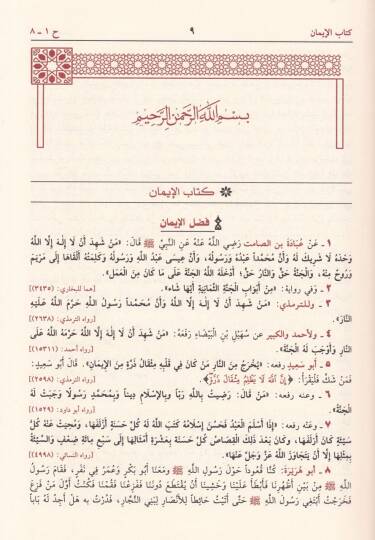 كتاب الإيمان
٩
ح ١ - ٨
بسم الله الرحمن الرحيم
كتاب الإيمان
فضل الإيمان
١ ـ عَنْ عُبَادَةَ بن الصامت رَضِيَ اللَّهُ عَنْهُ عَنِ النَّبِيِّ ﷺ قَالَ: «مَنْ شَهِدَ أَنْ لَا إِلَهَ إِلَّا اللَّهُ
وَحْدَهُ لَا شَرِيكَ لَهُ وَأَنَّ مُحَمَّداً عَبْدُهُ وَرَسُولُهُ، وَأَنَّ عِيسَى عَبْدُ اللَّهِ وَرَسُولُهُ وَكَلِمَتُهُ أَلْقَاهَا إِلَى مَرْيَمَ
وَرُوحٌ مِنْهُ، وَالجَنَّةُ حَقٌّ وَالنَّارُ حَقٌّ؛ أَدْخَلَهُ اللَّهُ الجَنَّةَ عَلَى مَا كَانَ مِنَ الْعَمَلِ».
٢ ـ وَفِي رواية: «مِنْ أَبْوَابِ الْجَنَّةِ الثَّمَانِيَةِ أَيّهَا شَاءَ». [هما للبخاري: (٣٤٣٥)]
٣ ـ وللترمذي: «مَنْ شَهِدَ أَنْ لَا إِلَهَ إِلَّا اللَّهُ وَأَنَّ مُحَمَّداً رَسُولُ اللَّهِ حَرَّمَ اللَّهُ عَلَيْهِ
النَّارَ». [رواه الترمذي: (٢٦٣٨)]
٤ ـ ولأحمد والكبير عن سُهَيْلِ بْنِ الْبَيْضَاءِ رفعهُ: «مَنْ شَهِدَ أَنْ لَا إِلَهَ إِلَّا اللَّهُ حَرَّمَهُ اللَّهُ عَلَى
النَّارِ وَأَوْجَبَ لَهُ الْجَنَّةَ». [رواه أحمد: (١٥٣١١)]
٥ ـ أبو سَعِيدٍ رفعه: «يُخْرَجُ مِنَ النَّارِ مَنْ كَانَ فِي قَلْبِهِ مِثْقَالُ ذَرَّةٍ مِنَ الإِيمَانِ». قَالَ أَبو سَعِيدٍ:
فَمَنْ شَكَّ فَلْيَقْرَأْ: ﴿إِنَّ اللَّهَ لَا يَظْلِمُ مِثْقَالَ ذَرَّةٍ﴾. [رواه الترمذي: (٢٥٩٨)]
٦ ـ وعنه رفعه: «مَنْ قَالَ: رَضِيتُ بِاللَّهِ رَبّاً وَبِالإِسْلَامِ دِيناً وَبِمُحَمَّدٍ رَسُولًا وَجَبَتْ لَهُ
الْجَنَّةُ». [رواه أبو داود: (١٥٢٩)]
٧ ـ وعنْه رفعه: «إِذَا أَسْلَمَ الْعَبْدُ فَحَسُنَ إِسْلَامُهُ كَتَبَ اللَّهُ لَهُ كُلَّ حَسَنَةٍ أَزْلَفَهَا، وَمُحِيَتْ عَنْهُ كُلُّ
سَيِّئَةٍ كَانَ أَزْلَفَهَا، وَكَانَ بَعْدَ ذَلِكَ الْقِصَاصُ كُلُّ حَسَنَةٍ بِعَشَرَةِ أَمْثَالِهَا إِلَى سَبْعِ مِائَةِ ضِعْفٍ وَالسَّيِّئَةُ
بِمِثْلِهَا إِلَّا أَنْ يَتَجَاوَزَ اللَّهُ عَزَّ وَجَلَّ عَنْهَا». [رواه النسائي: (٤٩٩٨)]
٨ ـ أبو هُرَيْرَةَ: كُنَّا قُعُوداً حَوْلَ رَسُولِ اللَّهِ ﷺ وَمَعَنَا أَبُو بَكْرٍ وَعُمَرُ فِي نَفَرٍ، فَقَامَ رَسُولُ
اللَّهِ ﷺ مِنْ بَيْنِ أَظْهُرِنَا فَأَبْطَأَ عَلَيْنَا وَخَشِينَا أَنْ يُقْتَطَعَ دُونَنَا فَفَزِعْنَا فَقُمْنَا فَكُنْتُ أَوَّلَ مَنْ فَزِعَ
فَخَرَجْتُ أَبْتَغِي رَسُولَ اللَّهِ ﷺ حَتَّى أَتَيْتُ حَائِطاً لِلأَنْصَارِ لِبَنِي النَّجَّارِ، فَدُرْتُ بِهِ هَلْ أَجِدُ لَهُ بَاباً